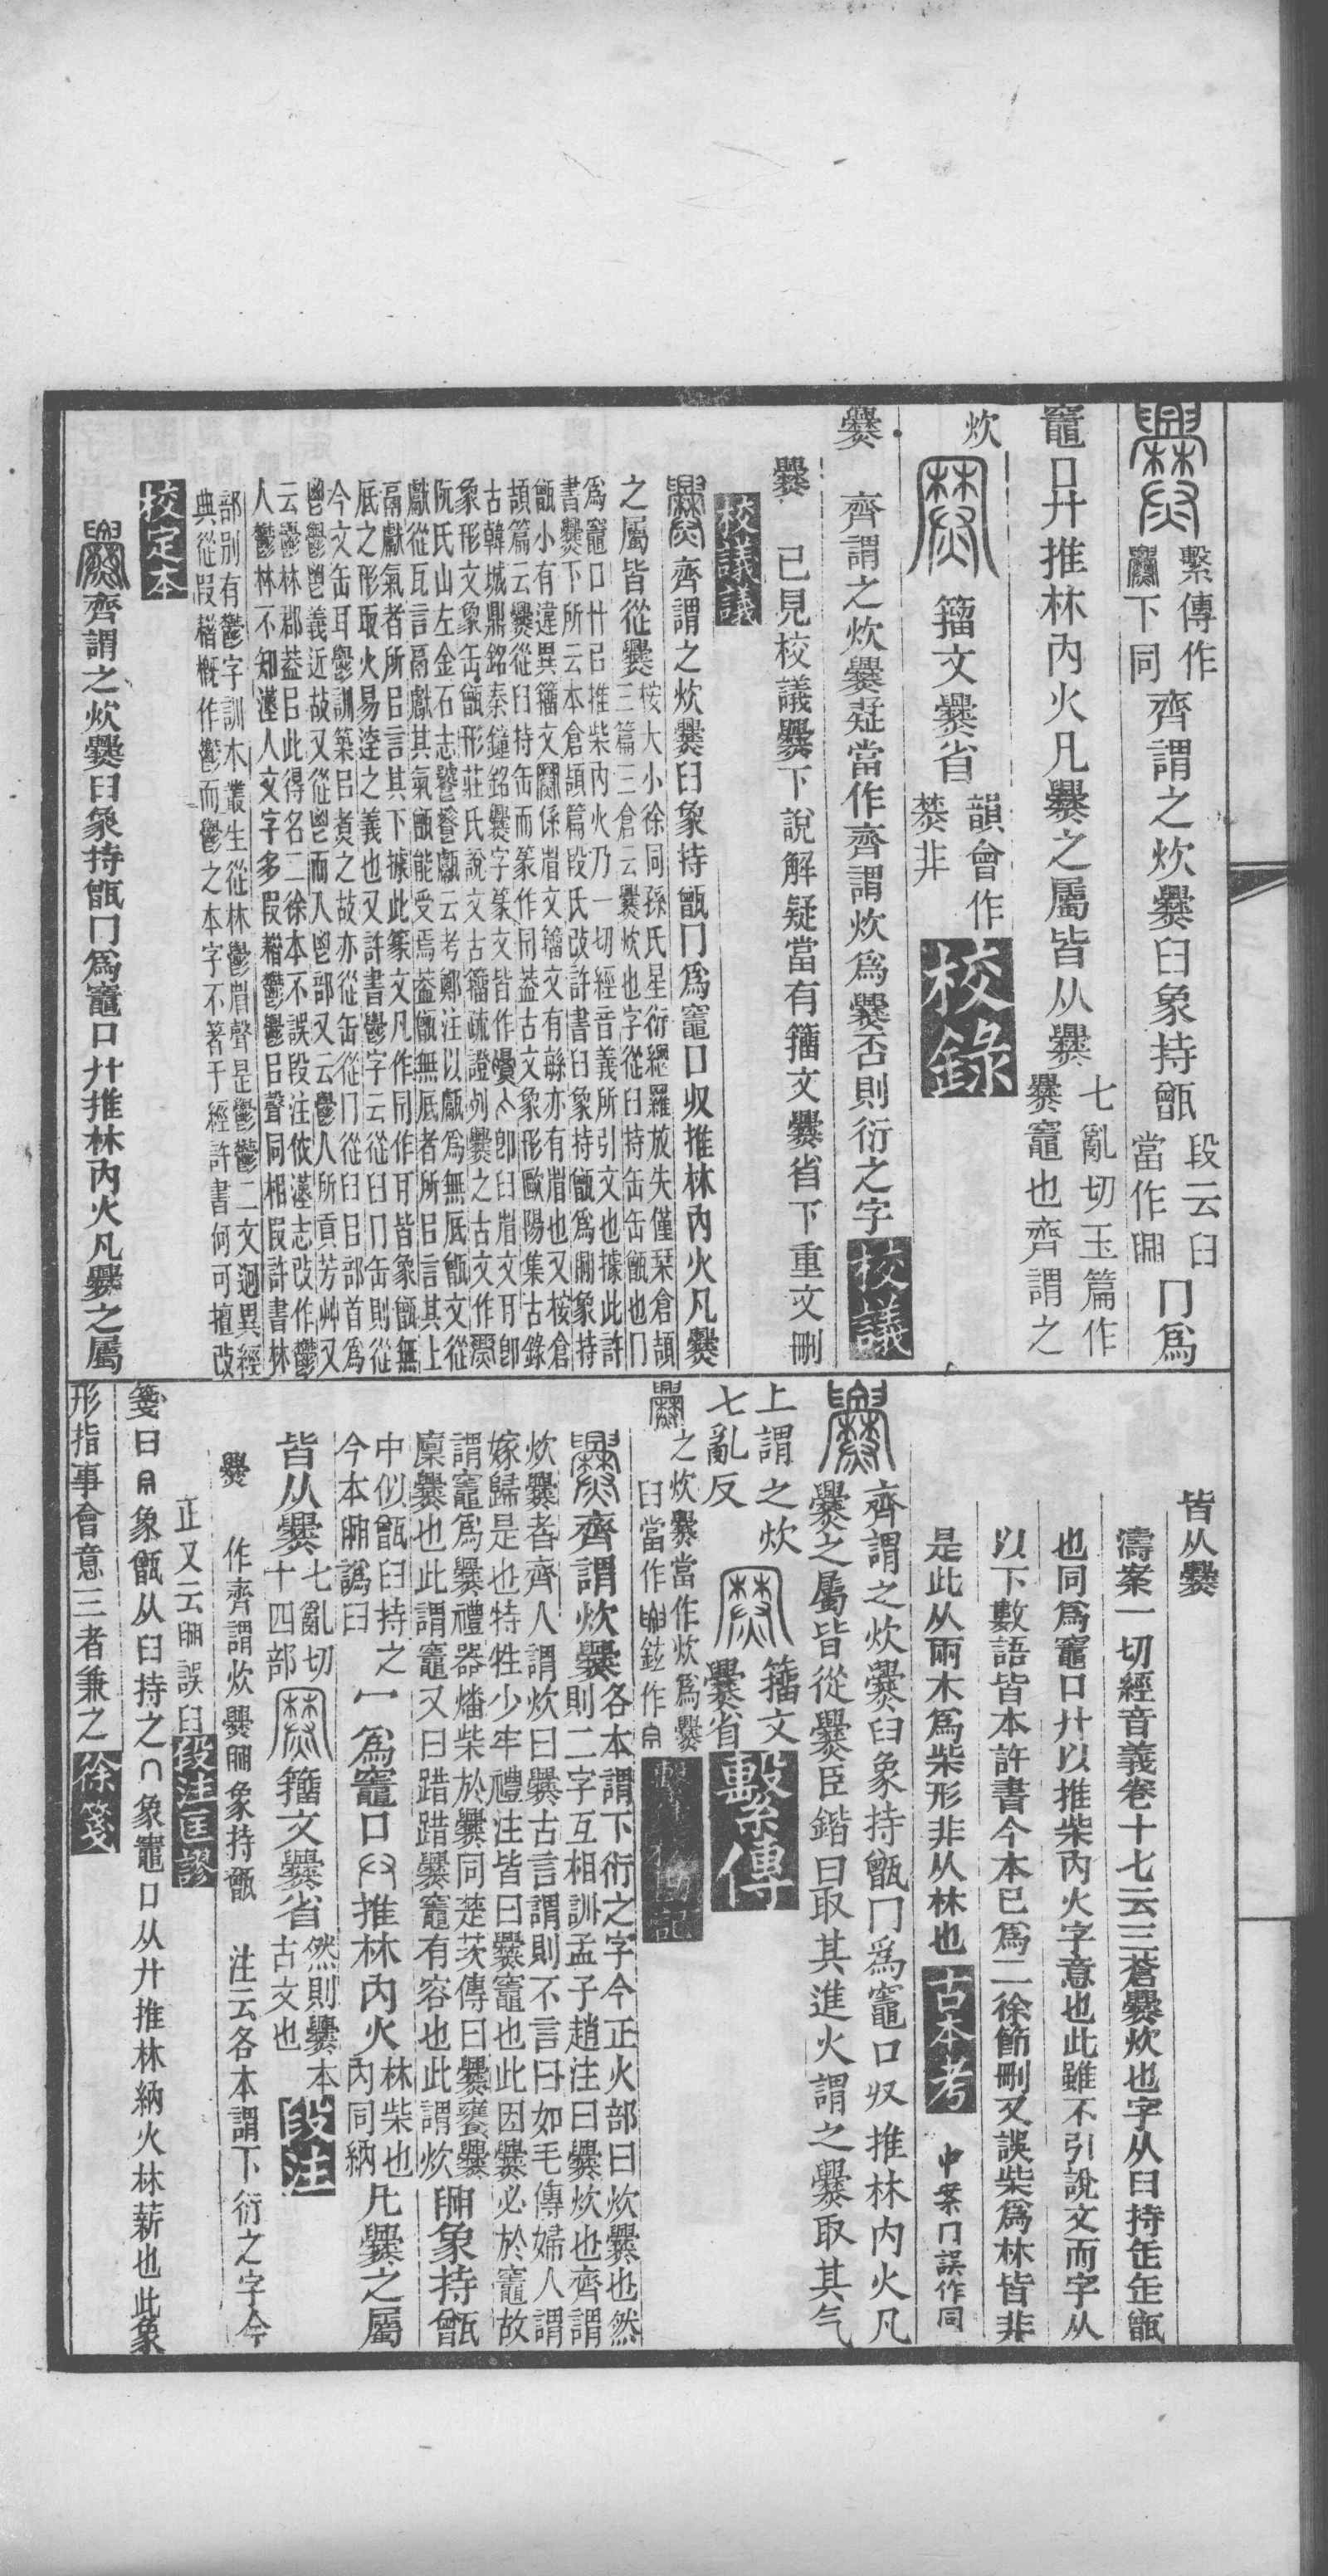 繫傳作
下同
齊謂之炊爨𦥑象持甑
段云𦥑
當作
冂爲
竈口廾推林內火凡爨之屬皆从爨
七亂切玉篇作
爨竈也齊謂之
炊
籒文爨省
韻會作
非
校錄
爨
齊謂之炊爨疑當作齊謂炊爲爨否則衍之字
校議
爨
已見校議爨下說解疑當有籒文爨省下重文刪
校議議
齊謂之炊爨𦥑象持甑冂爲竈口収推林內火凡爨
之屬皆從爨
桉大小徐同孫氏星衍經羅放失僅栞倉頡
三篇三倉云爨炊也字從𦥑持缶缶甑也冂
爲竈口廾㠯推柴內火乃一切經音義所引文也據此許
書爨下所云本倉頡篇段氏改許書𦥑象持甑爲
象持
甑小有違異籒文
係省文籒文有緐亦有省也又桉倉
頡篇云爨從𦥑持缶而篆作同葢古文象形歐陽集古錄
古韓城鼎銘秦鐘銘爨字篆文皆作
卽𦥑省文
卽
象形文象缶甑形莊氏說文古籒疏證列爨之古文作
阮氏山左金石志
甗云考鄭注以甗爲無底甑文從
獻從瓦言鬲獻其氣甑能受焉葢甗無底者所㠯言其上
鬲獻氣者所㠯言其下據此篆文凡作同作
皆象甑無
底之形取火易達之義也又許書鬱字云從𦥑冂缶則從
今文缶耳鬱訓築㠯煑之故亦從缶從冂從𦥑㠯部首爲
鬯鬱鬯義近故又從鬯而入鬯部又云鬱人所貢芳艸又
云鬱林郡葢㠯此得名二徐本不誤段注依漢志改作鬱
人鬱林不知漢人文字多叚耤鬱鬱㠯聲同相叚許書林
部別有鬱字訓木叢生從林鬱省聲是鬱鬱二文迥異經
典從叚耤槪作鬱而鬱之本字不箸于經許書何可擅改
校定本
齊謂之炊爨𦥑象持甑冂爲竈口廾推林內火凡爨之屬
皆从爨
濤案一切經音義卷十七云三蒼爨炊也字从𦥑持缶缶甑
也同爲竈口廾以推柴內火字意也此雖不引說文而字从
以下數語皆本許書今本已爲二徐節刪又誤柴爲林皆非
是此从兩木爲柴形非从林也
古本考
中案冂誤作同
齊謂之炊爨𦥑象持甑冂爲竈口収推林內火凡
爨之屬皆從爨臣鍇曰取其進火謂之爨取其气
上謂之炊
七亂反
籒文
爨省
繫傳
之炊爨當作炊爲爨
𦥑當作
鉉作
繫傳校勘記
齊謂炊爨
各本謂下衍之字今正火部曰炊爨也然
則二字互相訓孟子趙注曰爨炊也齊謂
炊爨者齊人謂炊曰爨古言謂則不言曰如毛傳婦人謂
嫁歸是也特牲少牢禮注皆曰爨竈也此因爨必於竈故
謂竈爲爨禮器燔柴於爨同楚茨傳曰爨饔爨
廩爨也此謂竈又曰踖踖爨竈有容也此謂炊
象持甑
中似甑𦥑持之
今本
譌𦥑
冖爲竈口
推林內火
林柴也
內同納
凡爨之屬
皆从爨
七亂切
十四部
籒文爨省
然則爨本
古文也
段注
爨
作齊謂炊爨
象持甑
注云各本謂下衍之字今
正又云
誤𦥑
段注匡謬
箋曰
象甑从𦥑持之
象竈口从廾推林納火林薪也此象
形指事會意三者兼之
徐箋